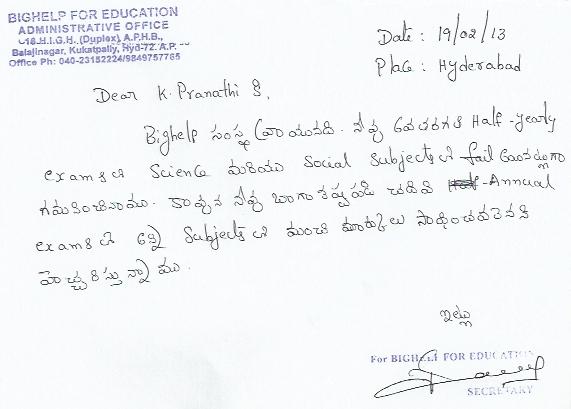 BIGHELP FOR EDUCATION
ADMINISTRATIVE OFFICE
-18.H.I.G.H. (Duplex) A.P.H.B.,
Balajinagar, Kukatpally, Hyd-72. A.P.
Office Ph: 040-23152224/9849757765
Date : 19/02/13
Place : Hyderabad
Dear K. Pranathi కి,
Bighelp సంస్థ వ్రాయునది. నీవు Half-yearly
exams లో Science మరియు Social Subjects లో fail
గమనించినాము. కావున నీవు బాగా కష్టపడి చదివి Annual
exams లో అన్ని Subjects లో మంచి మార్కులు సాధించవలెనని
హెచ్చరిస్తున్నాము.
ఇట్లు
For BIGHELP FOR EDUCATION
SECRETARY